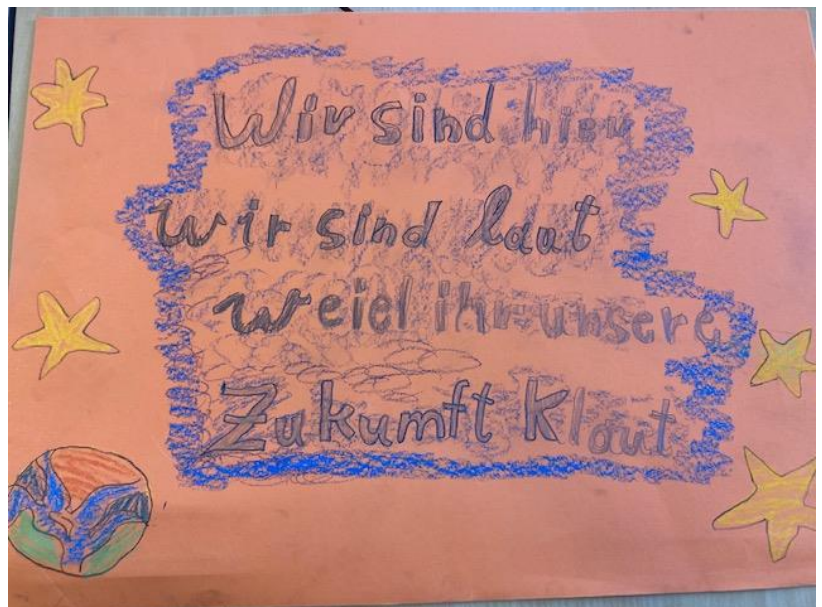 Wir sind hier
wir sind laut
weiel ihr unsere
Zukumft klaut